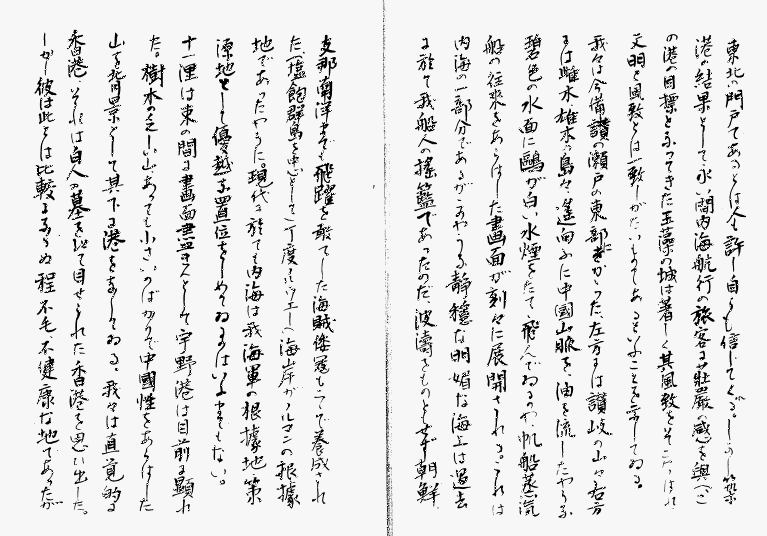 東北の門戸であるとは人も許し自らも信じてゐる。しかし築
港の結果として永い間内海航行の旅客に荘厳の感を与へこ
の港の目標となつてきた玉藻の城は著しく其風致をそこなはれ
文明と風致とは一致しがたいものであるといふことを示してゐる。
我々は今備讃の瀬戸の東部にさしかかつた、左方には讃岐の山々右方
には雌木雄木の島々、遙向ふに中国山脈を、油を流したやうな
碧色の水面に鷗が白い水煙をたて飛んでゐるのや、帆船蒸汽
船の往来をあらはした画面が刻々に展開される。これは
内海の一部分であるがこのやうな静穏な明媚な海上は過去
に於て我船人の揺籃であつたのだ、波濤をものともせず朝鮮
支那南洋までも飛躍を敢てした海賊倭冦もここで養成され
た、塩飽群島を中心として丁度ノルウエーの海岸がノルマンの根據
地であつたやうに。現代に於ても内海は我海軍の根據地策
源地として優越な置位をしめてゐるのはいふまでもない。
十一浬は束の間に画面尽きんとして宇野港は目前に顕れ
た。樹木の乏しい山あつても小さいのばかりで中國性をあらはした
山を背景として其下に港をなしてゐる。我々は直覚的に
香港、それは白人の墓を以て目せられた香港を思い出した。
しかし彼は此とは比較にならぬ程不毛不健康な地であつたが